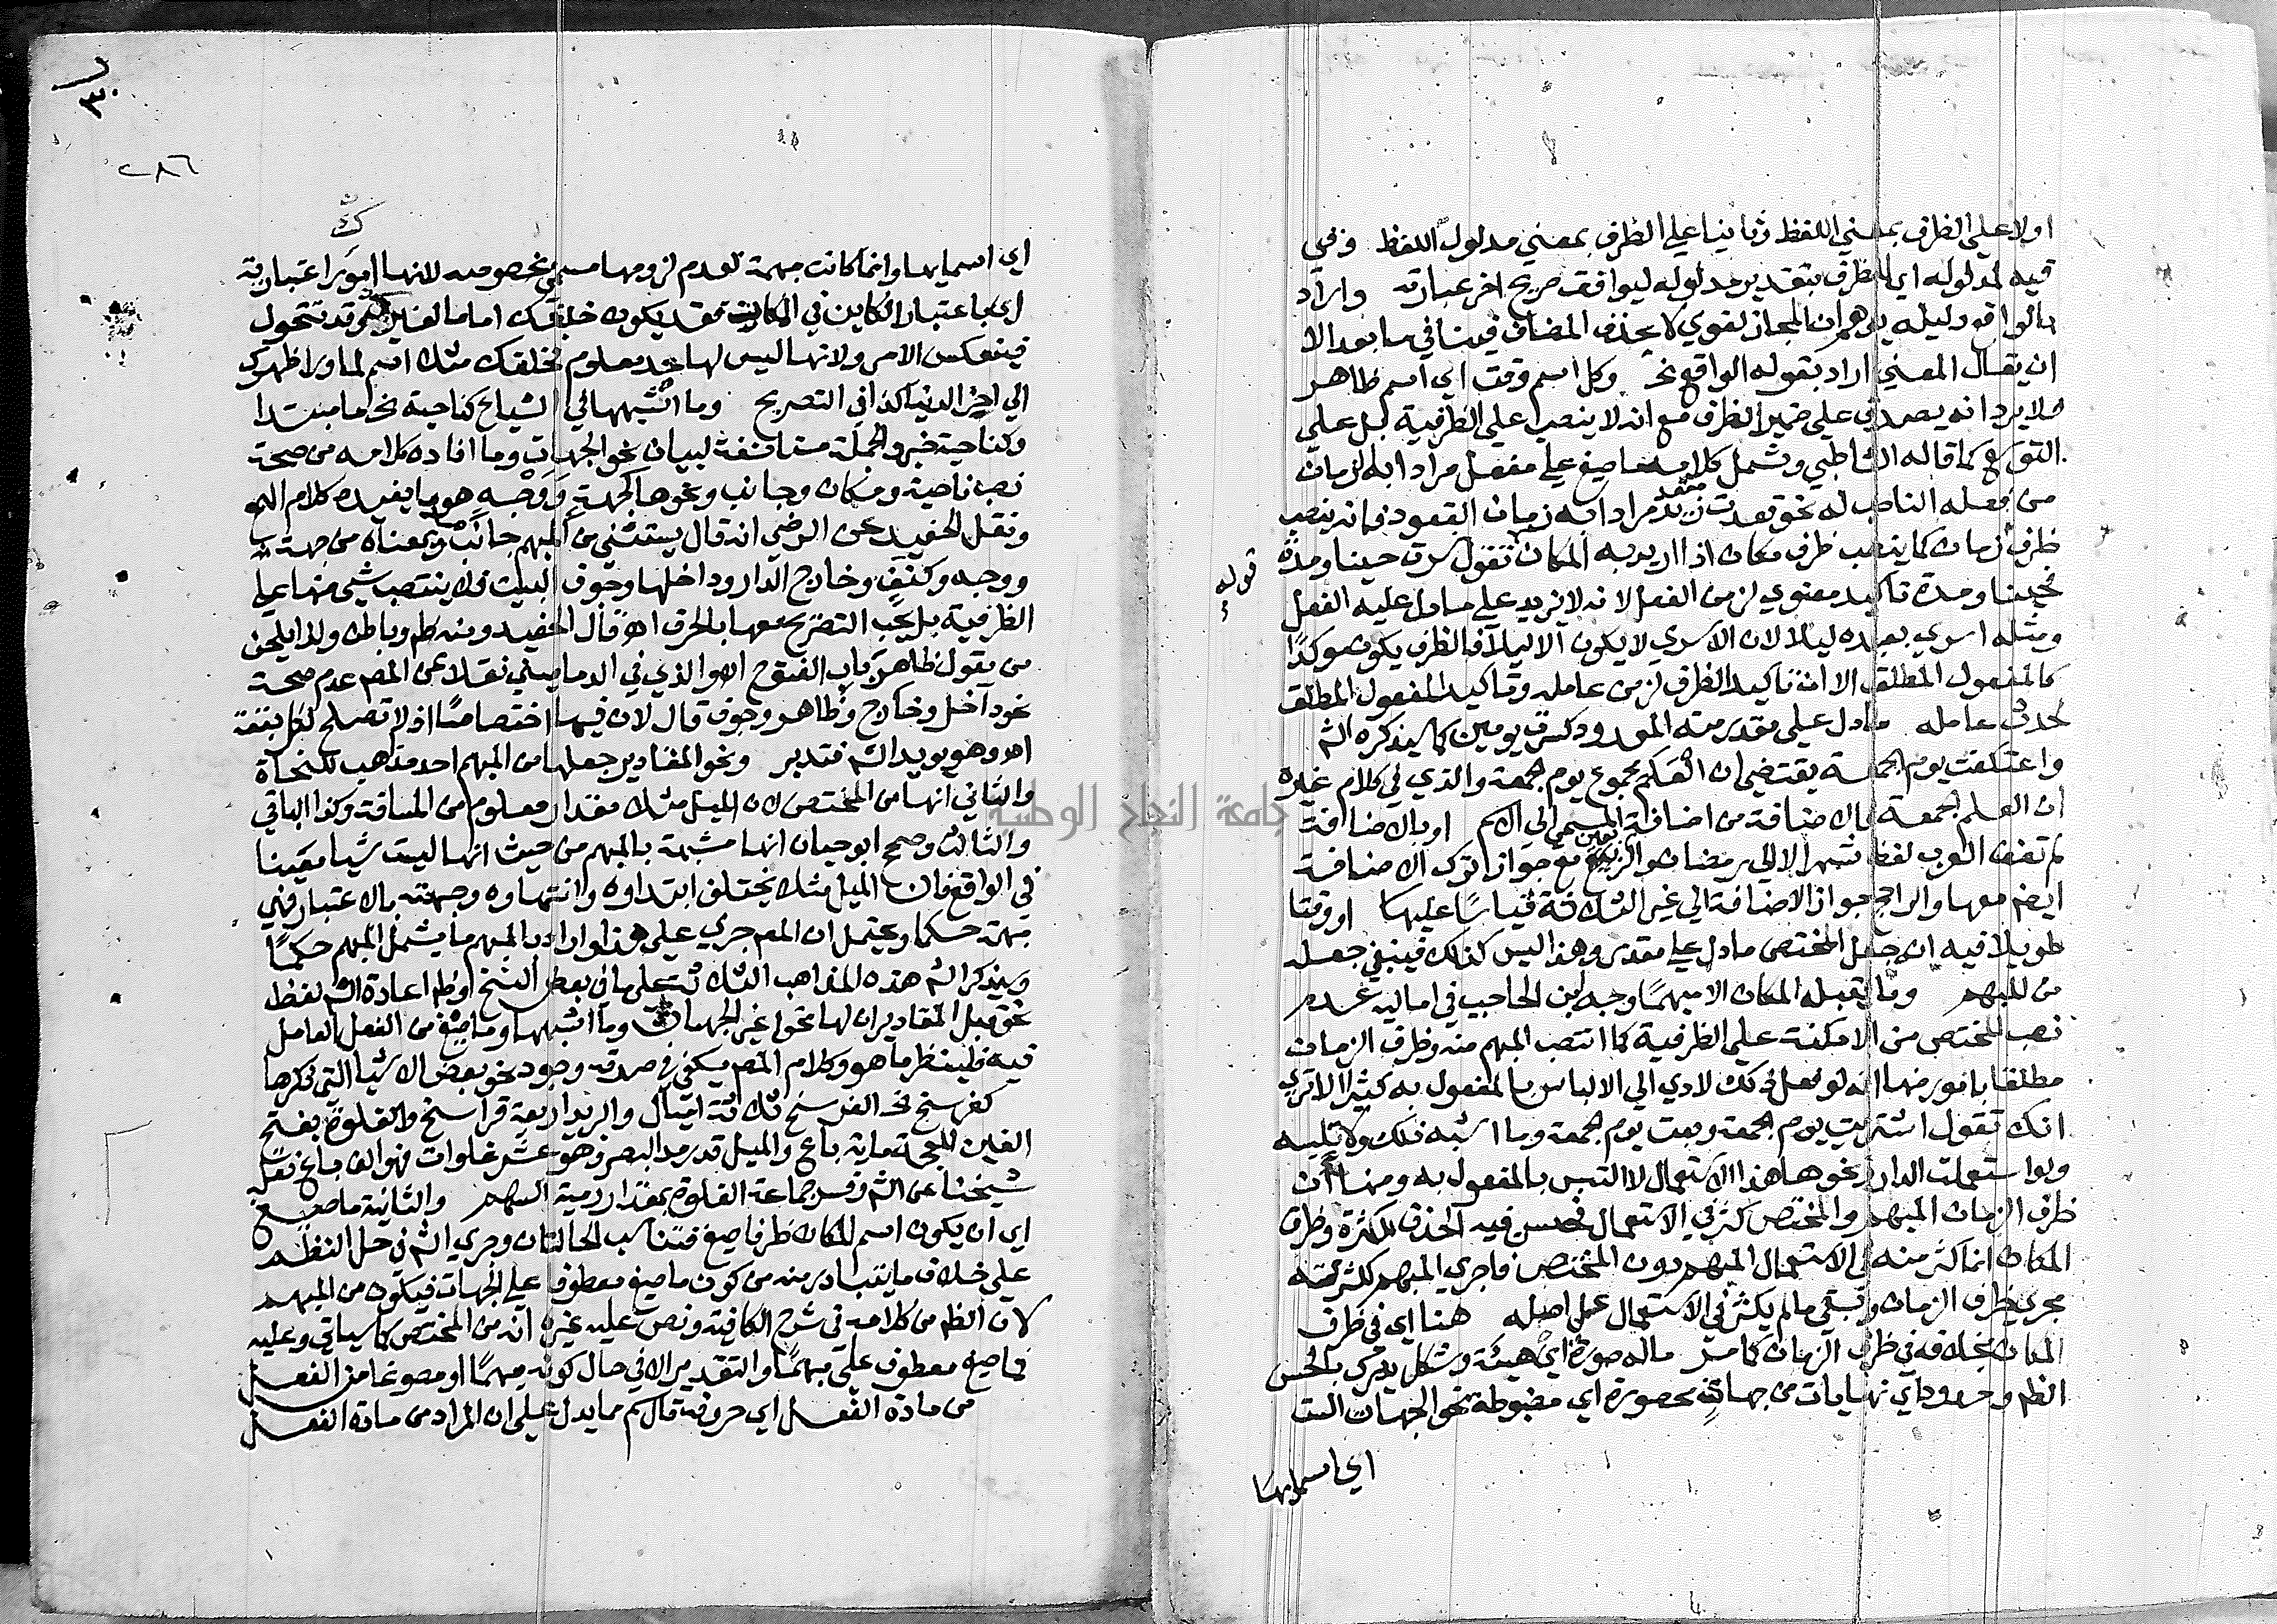 اولا على الظرف بمعني اللفظ وثانيا علي الظرف بمعني مدلول اللفظ وفي
فيه لمدلوله اي الظرف بتقدير مدلوله ليوافق صريح اخر عبارته واراد
بالواقع دليله يوهم ان المجاز لغوي لا بحذف المضاف فينافي ما بعد الا
ان يقال المعني اراد بقوله الواقع نحو وكل اسم وقت اي اسم ظاهر
فلا يرد انه يصدق علي ضمير الظرف مع انه لا ينصب علي الظرفية بل علي
التوسع كما قاله الشاطبي وشمل كلامه ما صيغ علي مفعل مرادا به الزمان
من فعله الناصب له نحو قعدت مقعد زيد مرادا به زمان القعود فانه ينصب
ظرف زمان كما ينصب ظرف مكان اذا اريد به المكان تقول سرت حينا ومدة
فحينا ومدة تاكيد معنوي لزمن الفعل لانه لا يزيد علي ما دل عليه الفعل
ومثله اسري بعبده ليلا لان الاسري لا يكون الا ليلا فالظرف يكون موكدا
كالمفعول المطلق الا ان تاكيد الظرف لزمن عامله وتاكيد المفعول المطلق
لحدث عامله ما دل علي مقدر منه المعدود كسرت يومين كما سيذكره الش
واعتكفت يوم الجمعة يقتضي ان العلم مجموع يوم الجمعة والذي في كلام غيره
ان العلم الجمعة فالاضافة من اضافة المسمي الي الاسم او بالاضافة
لم تضف العرب لفظ شهر الا الي رمضان والربيعين مع جواز ترك الاضافة
ايضم معها والراجح جواز الاضافة الي غير الثلاثة قياسا عليها او وقتا
طويلا فيه ان جعل المختص ما دل علي مقدر وهذا ليس كذلك فينبغي جعله
من المبهم وما يقبله المكان الا مبهما وجه ابن الحاجب في اماليه عدم
نصب المختص من الامكنة علي الظرفية كما انتصب المبهم منه وظرف الزمان
مطلقا بامور منها انه لو فعل ذلك لادي الي الالباس بالمفعول به كثيرا الا تري
انك تقول اشتريت يوم الجمعة وبعت يوم الجمعة وما اشبه ذلك ولا تلبيسه
ولو استعملت الدار ونحوها هذا الاستعمال لا التبس بالمفعول به ومنها ان
ظرف الزمان المبهم والمختص كثر في الاستعمال فحسن فيه الحذف للكثرة وظرف
المكان انما كثر منه في الاستعمال المبهم دون المختص فاجري المبهم لكثرته
مجري ظرف الزمان وبقي ما لم يكثر في الاستعمال علي اصله هنا اي في ظرف
المكان بخلافه في ظرف الزمان كما مر ماله صورة اي هيئة وشكل يدرك بالحس
الظم وحدود اي نهايات من جهاته محصورة اي مضبوطة نحو الجهات الست
اي اسمايها
قوله
٣٠
٢٨٦
اي اسمايها وانما كانت مبهمة لعدم لزومها مسمي بخصوصه لانها امور اعتبارية
اي باعتبار الكاين في المكان فقد يكون خلفك اماما لغيرك وقد تتحول
فينعكس الامر ولانها ليس لها حد معلوم فخلفك مثلا اسم لما ورا ظهرك
الي اخر الدنيا كذا في التصريح وما اشبهها في الشياع كناحية نحو اما مبتدا
وكناحية خبر والجملة مستانفة لبيان نحو الجهات وما افاده كلامه من صحة
نصب ناحية ومكان وجانب ونحوها كجهة ووجه هو ما يفيده كلام الهمع
ونقل الحفيد عن الرضي انه قال يستثني من المبهم جانب وما بمعناه من جهة
ووجه وكنف وخارج الدار وداخلها وجوف البيت فلا ينتصب شي منها علي
الظرفية بل يجب التصريح معها بالحرف اه قال الحفيد ومنه ظاهر وباطن ولذا يلحن
من يقول ظاهر باب الفتوح اه والذي في الدماميني نقلا عن المص عدم صحة
نحو داخل وخارج وظاهر وجوف قال لان فيها اختصاصا اذ لا تصلح لكل بقعة
اه وهو يويد الش فتدبر ونحو المقادير جعلها من المبهم احد مذاهب للنحاة
والثاني انها من المختص لان الميل مثلا مقدار معلوم من المسافة وكذا الباقي
والثالث وصحح ابو حيان انها مشبهة بالمبهم من حيث انها ليست شيا معينا
في الواقع فان الميل مثلا يختلف ابتداوه وانتهاوه وجهته بالاعتبار فهي
مبهمة حكما ويحتمل ان المص جري علي هذا واراد بالمبهم ما يشمل المبهم حكما
وسيذكر الش هذه المذاهب الثلاثة علي ما في بعض النسخ وظم اعادة الش لفظ
نحو قبل المقادير ان لها نحوا غير الجهات وما اشبهها وما صيغ من الفعل العامل
فيه فلينظر ما هو وكلام المص يكفي في صدقه وجود نحو بعض الاشيا التي ذكرها
كفرسخ نحو الفرسخ ثلاثة اميال والبريد اربعة فراسخ والغلوة بفتح
الغين المعجمة ماية باع والميل قدر مد البصر وهو عشر غلوات فهو الف باع نقله
شيخنا عن الش وفسر جماعة الغلوة بمقدار رمية السهم والثانية ما صيغ
اي ان يكون اسم المكان ظرفا صيغ فتناسب الحالتان وجري الش في حل النظم
علي خلاف ما يتبادر منه من كون ما صيغ معطوف علي الجهات فيكون من المبهم
لان الظم من كلامه في شرح الكافية ونص عليه غيره انه من المختص كما سياتي وعليه
فما صيغ معطوف علي مبهما والتقدير الا في حال كونه مبهما او مصوغا من الفعل
من مادة الفعل اي حروفه قال سم مما يدل علي ان المراد من مادة الفعل
جامعة النجاح الوطنية